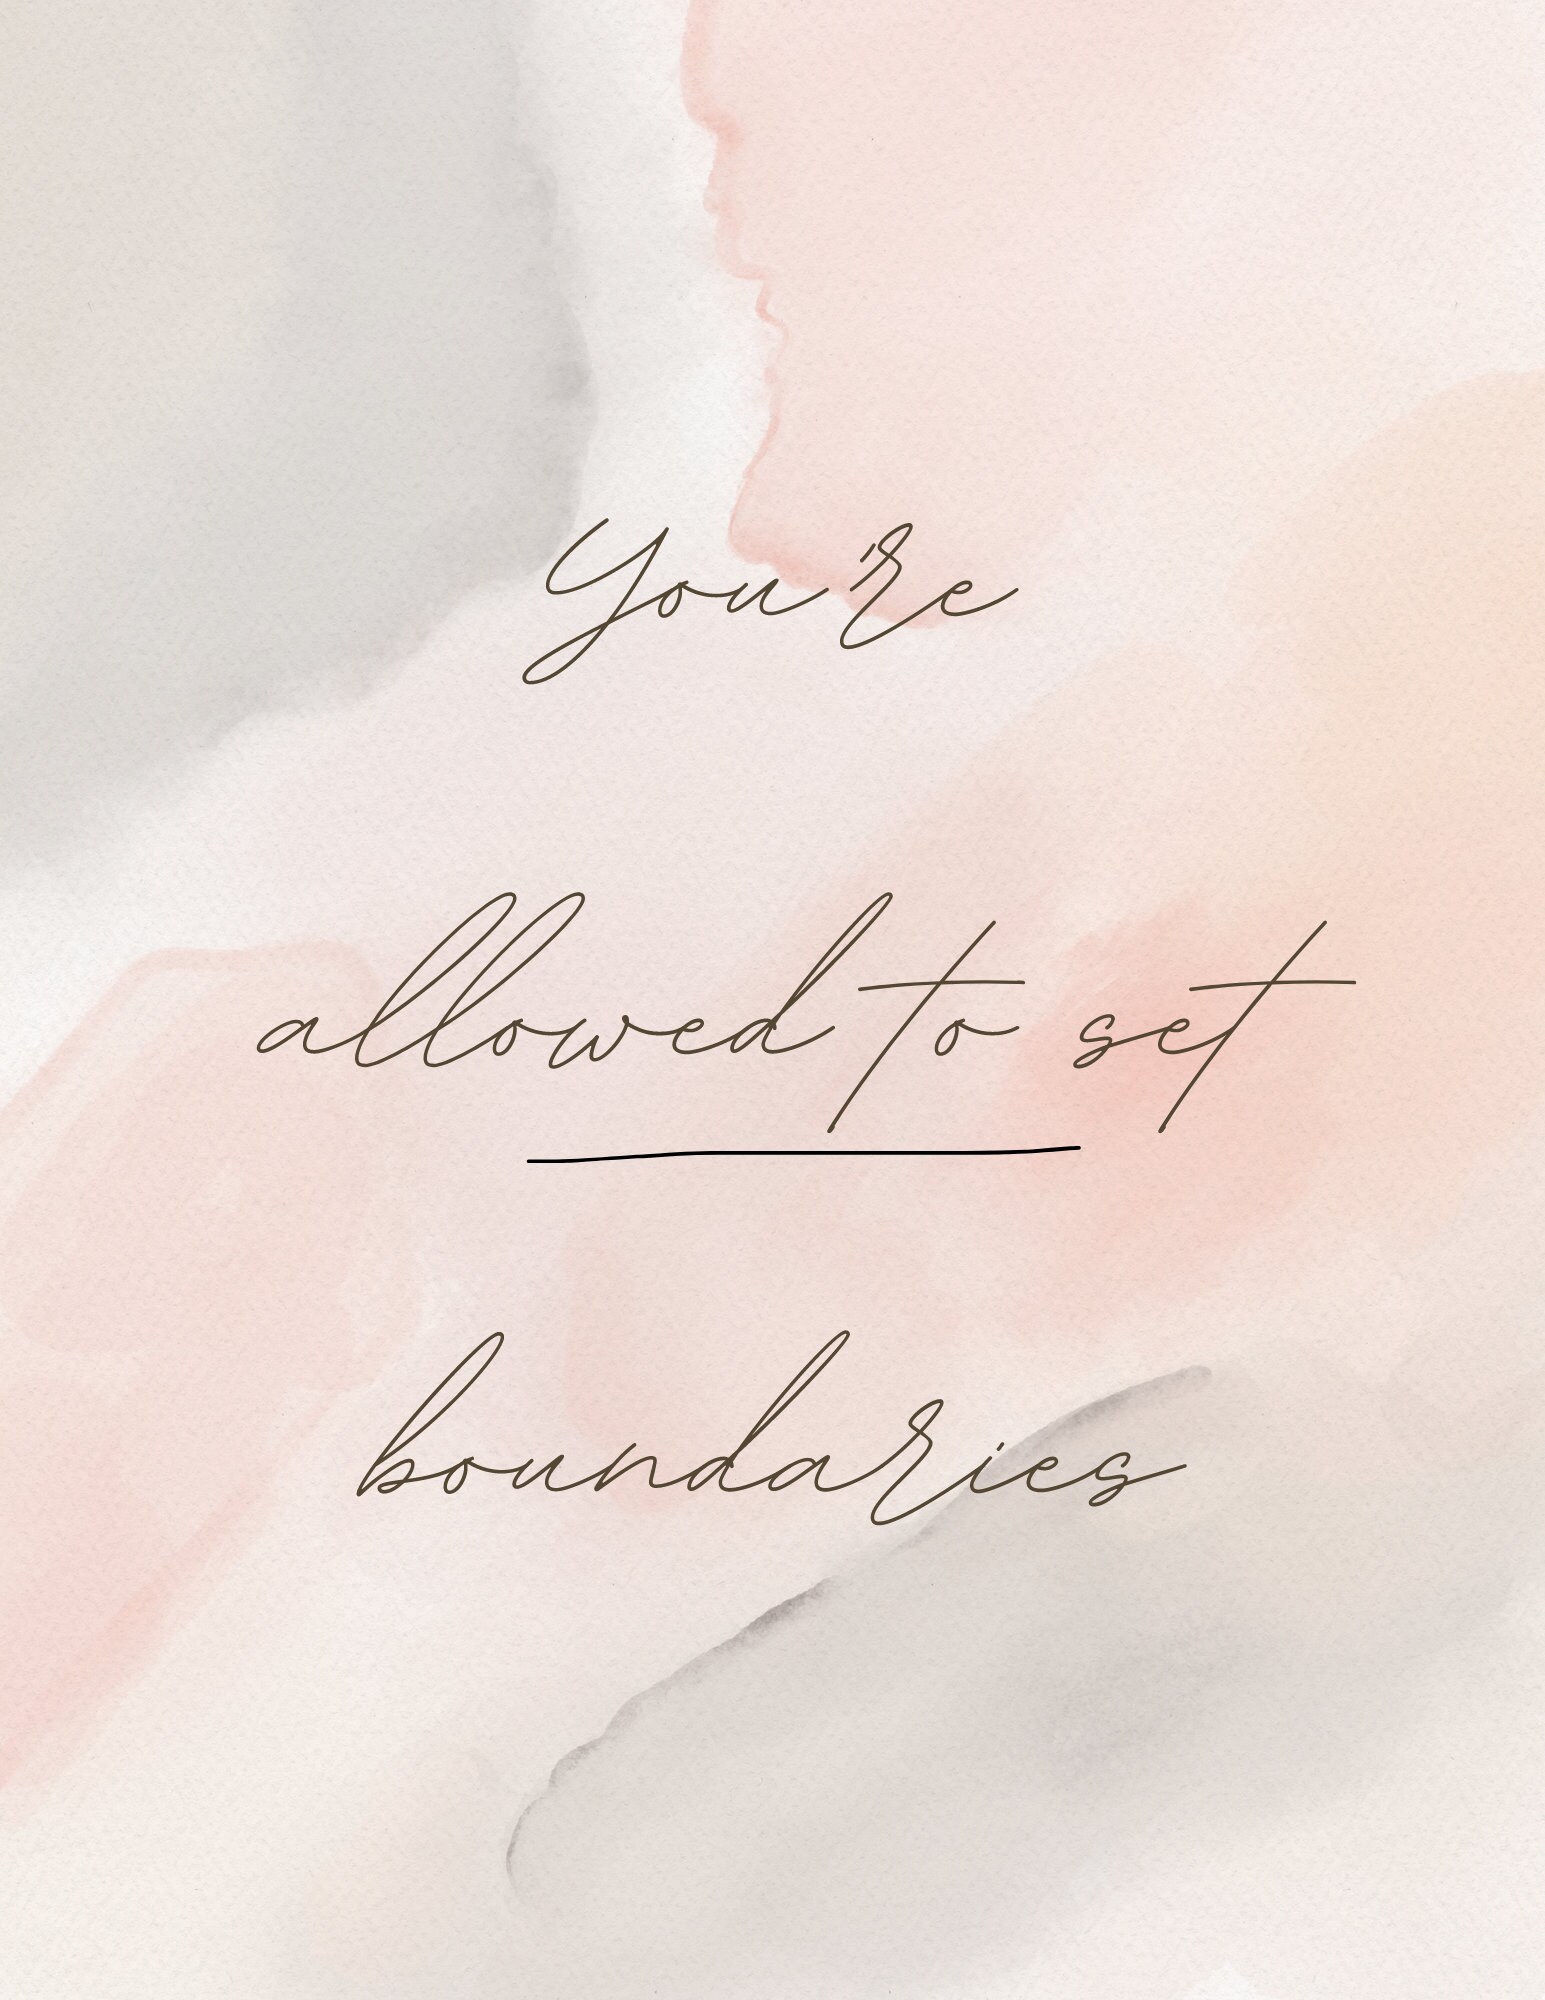 You're
allowed to set
boundaries